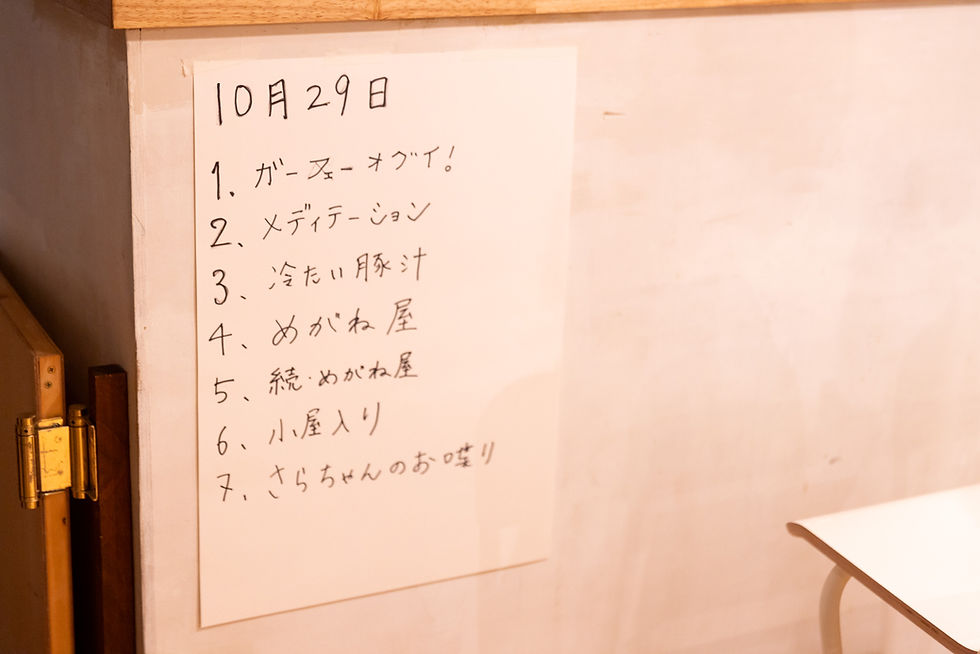 10月29日
1、ガーフェーオグイ!
2、メディテーション
3、冷たい豚汁
4、めがね屋
5、続・めがね屋
6、小屋入り
7、さらちゃんのお喋り